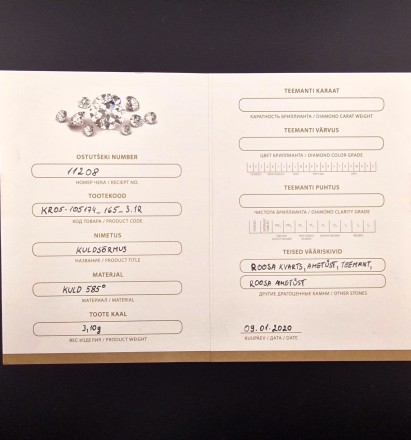 OSTUTŠEKI NUMBER
11208
НОМЕР ЧЕКА / RECIEPT NO.
TOOTEKOOD
KR05-105174_165_3.1R
КОД ТОВАРА / PRODUCT CODE
NIMETUS
KULDSÕRMUS
НАЗВАНИЕ / PRODUCT TITLE
MATERJAL
KULD 585°
МАТЕРИАЛ / MATERIAL
TOOTE KAAL
3,10g
ВЕС ИЗДЕЛИЯ / PRODUCT WEIGHT
TEEMANTI KARAAT
КАРАТНОСТЬ БРИЛЛИАНТА / DIAMOND CARAT WEIGHT
TEEMANTI VÄRVUS
ЦВЕТ БРИЛЛИАНТА / DIAMOND COLOR GRADE
TEEMANTI PUHTUS
ЧИСТОТА БРИЛЛИАНТА / DIAMOND CLARITY GRADE
TEISED VÄÄRISKIVID
ROOSA KVARTS, AMETÜST, TEEMANT,
ROOSA AMETÜST
ДРУГИЕ ДРАГОЦЕННЫЕ КАМНИ / OTHER STONES
09.01.2020
KUUPÄEV / ДАТА / DATE